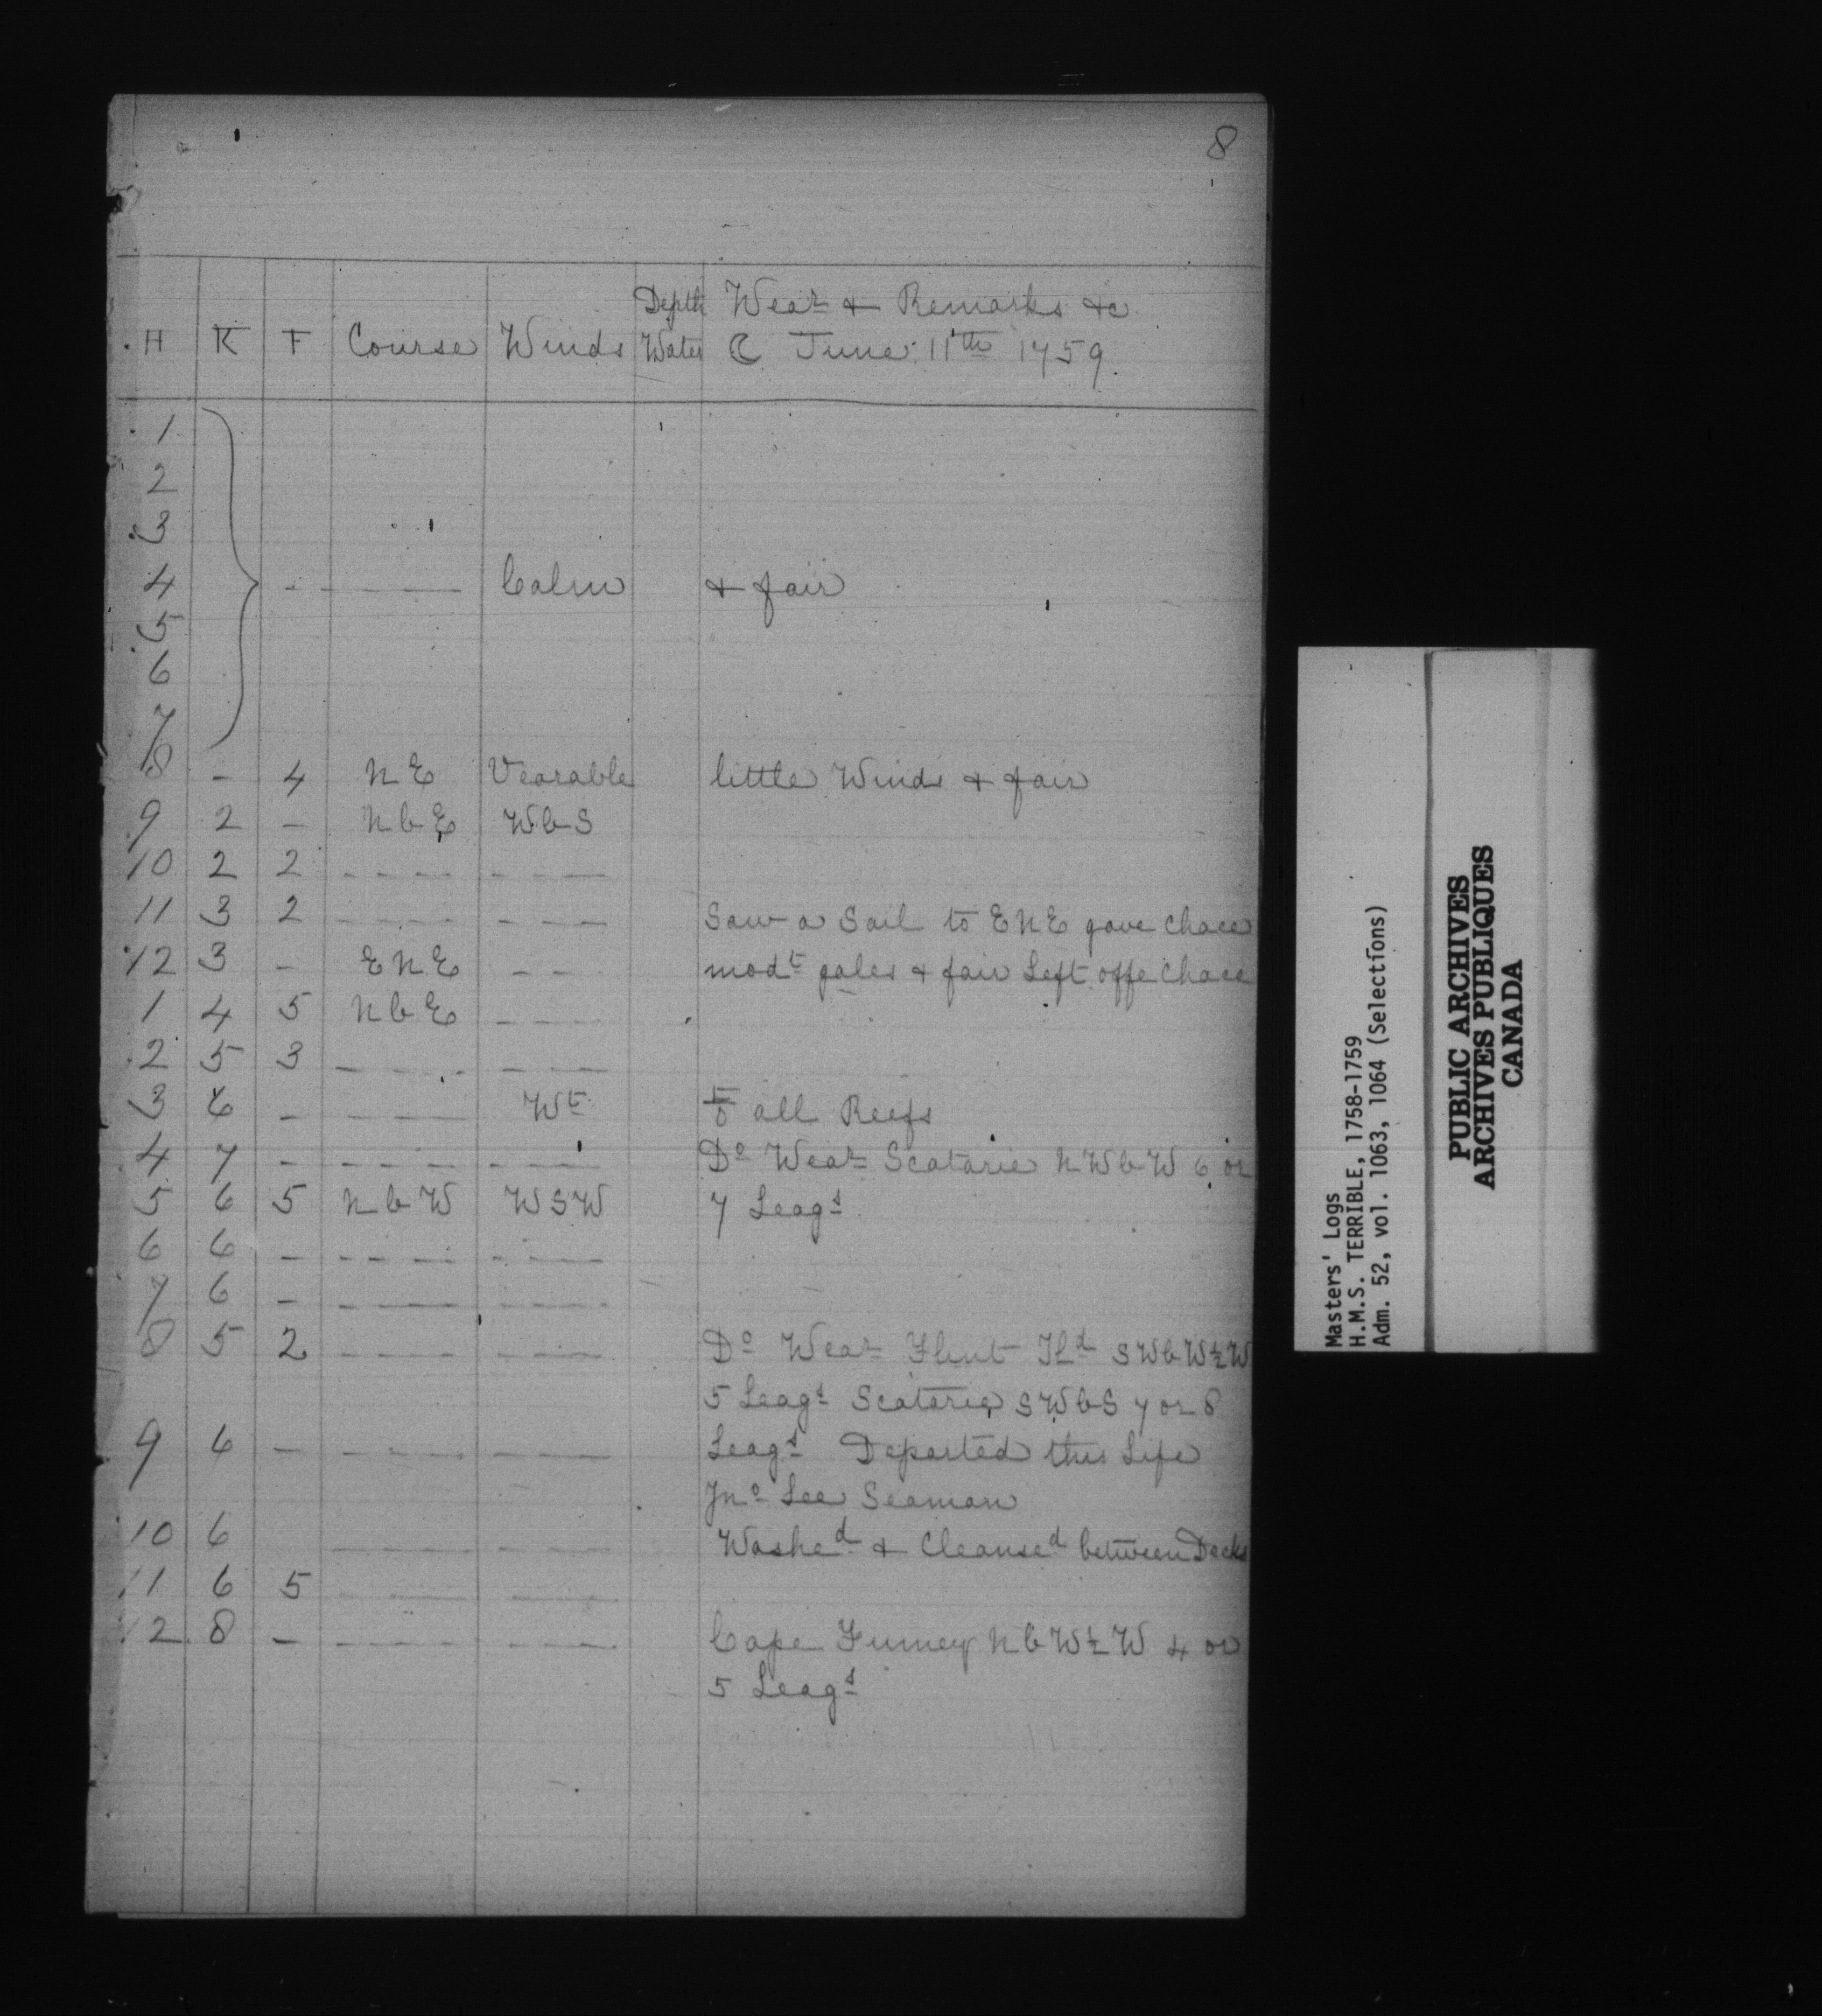 8
Depth Wea^r & Remarks &c
H K F Course Winds Water ☾ June 11th 1759.
1
2
3
4 - — Calm & fair
5
6
7
8 - 4 N E Vearable little Winds & fair
9 2 - N b E W b S
10 2 2 - - - - - - - -
11 3 2 - - - - - - - Saw a Sail to E N E gave Chace
12 3 - E N E - - mod^t gales & fair Left offe Chace
1 4 5 N b E - - -
2 5 3 - - - - - - -
3 6 - - - — W^t all Reefs
4 7 - - - - - - - - - D^o Wea^r Scatarie N W b W 6 or
5 6 5 N b W W S W 7 Leag^s
6 6 - - - - - - - -
7 6 - - - - - - - -
8 5 2 - - - - - - - D^o Wea^r Flint Il^d S W b W ½ W
5 Leag^s Scatarie S W b S 7 or 8
9 6 - - - - - - - - Leag^s Departed this Life
Jn^o Lee Seaman
10 6 - - - - - - Washe^d & Cleanse^d between Decks
11 6 5 - - - - - -
12 8 - - - - - - - - Cape Fumey N b W ½ W 4 or
5 Leag^s
Masters' Logs
H.M.S. TERRIBLE, 1758-1759
Adm. 52, vol. 1063, 1064 (Selections)
PUBLIC ARCHIVES
ARCHIVES PUBLIQUES
CANADA